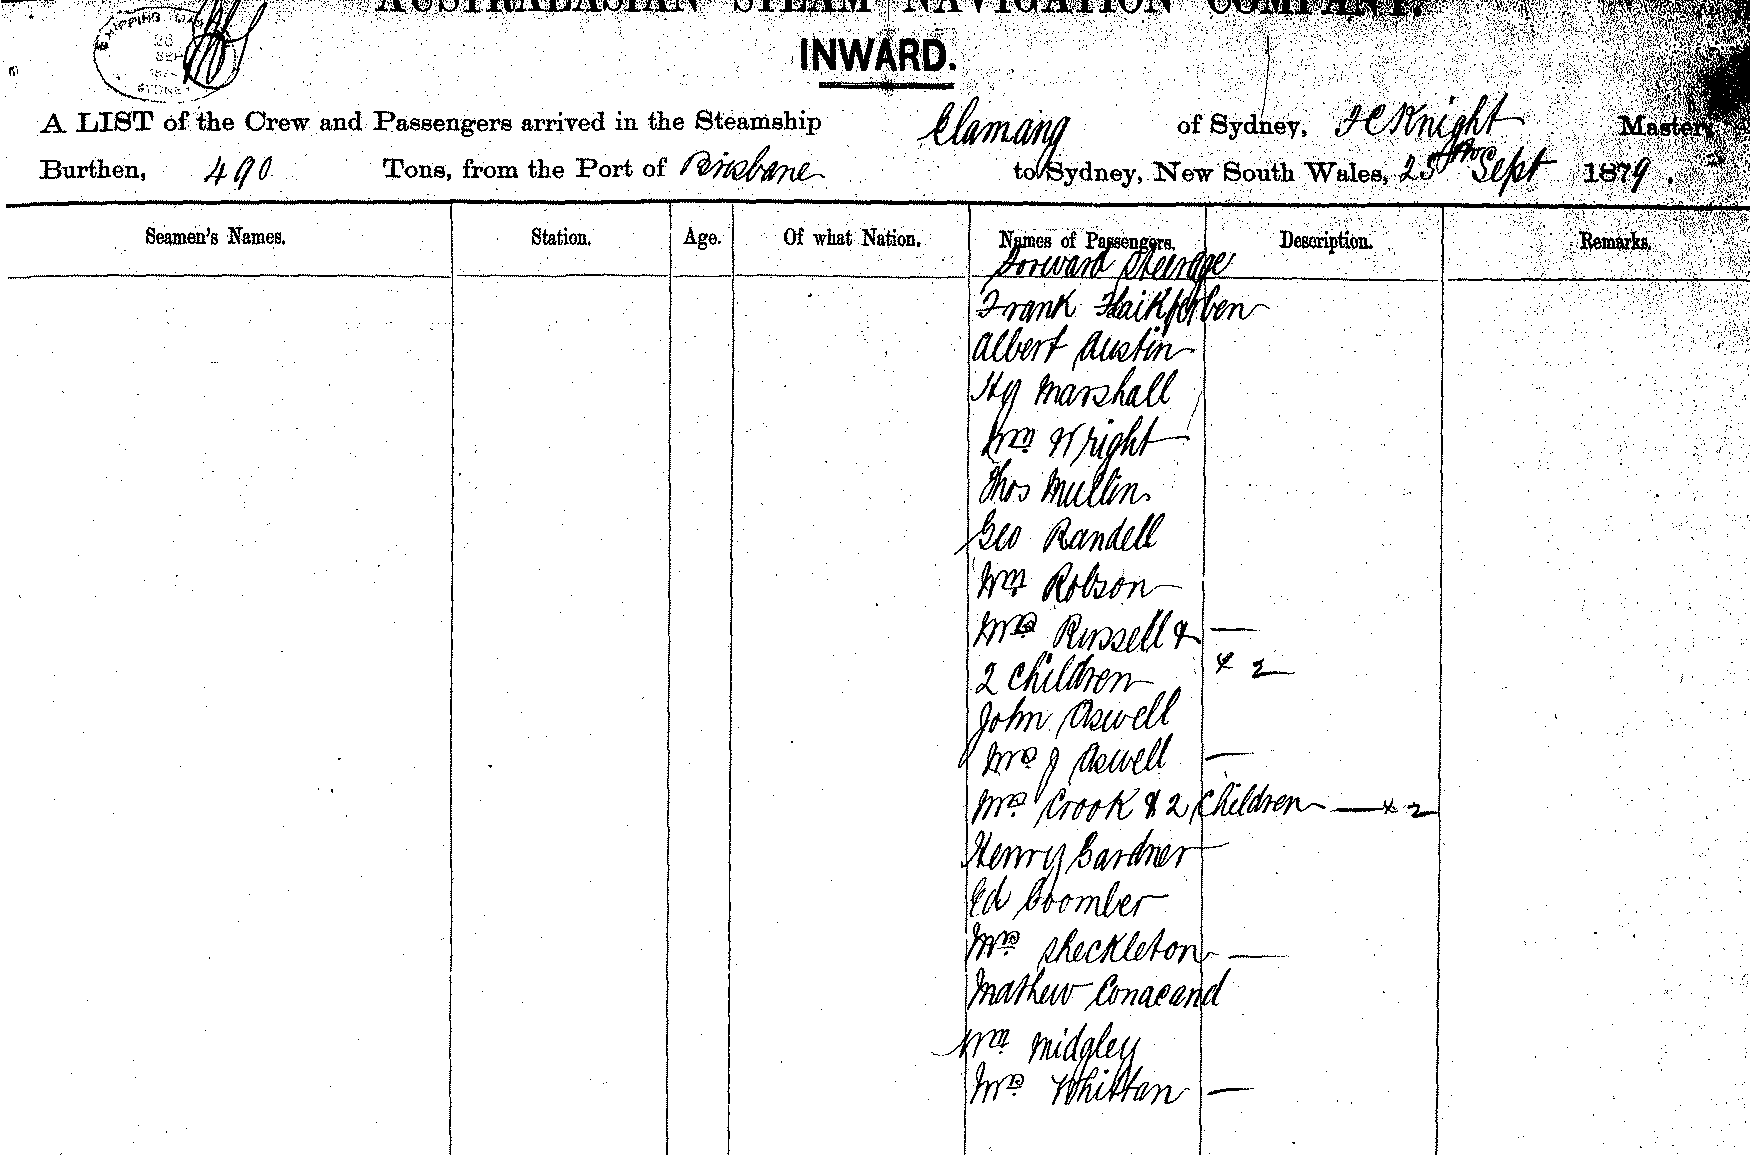 AUSTRALASIAN STEAM NAVIGATION COMPANY.
SHIPPING
SYDNEY
INWARD.
A LIST of the Crew and Passengers arrived in the Steamship Elamang of Sydney, F C Knight Master,
Burthen, 490 Tons, from the Port of Brisbane to Sydney, New South Wales, 25th Sept 1879.
Seamen's Names. Station. Age. Of what Nation. Names of Passengers. Description. Remarks.
Forward Steerage
Frank
Albert Austin
Hy Marshall
Wm Wright
Thos Mullin
Geo Randell
Wm Robson
Mrs Russell & —
2 Children & 2
John Aswell
Mrs J Aswell —
Mrs Crook & 2 Children — & 2
Henry Gardner
Ed Coomber
Mrs Sheckleton —
Mathew Conacand
Wm Midgley
Mrs Whittan —